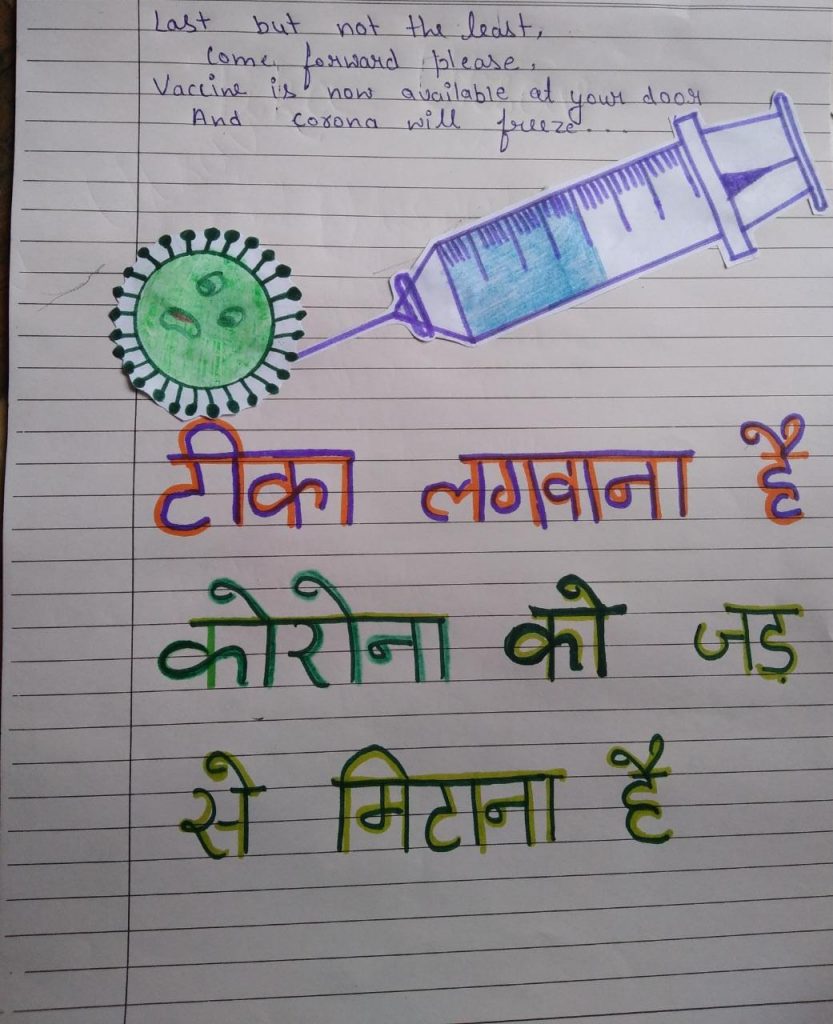 Last but not the least,
Come forward please,
Vaccine is now available at your door
And corona will freeze...
टीका लगवाना है
कोरोना को जड़
से मिटाना है